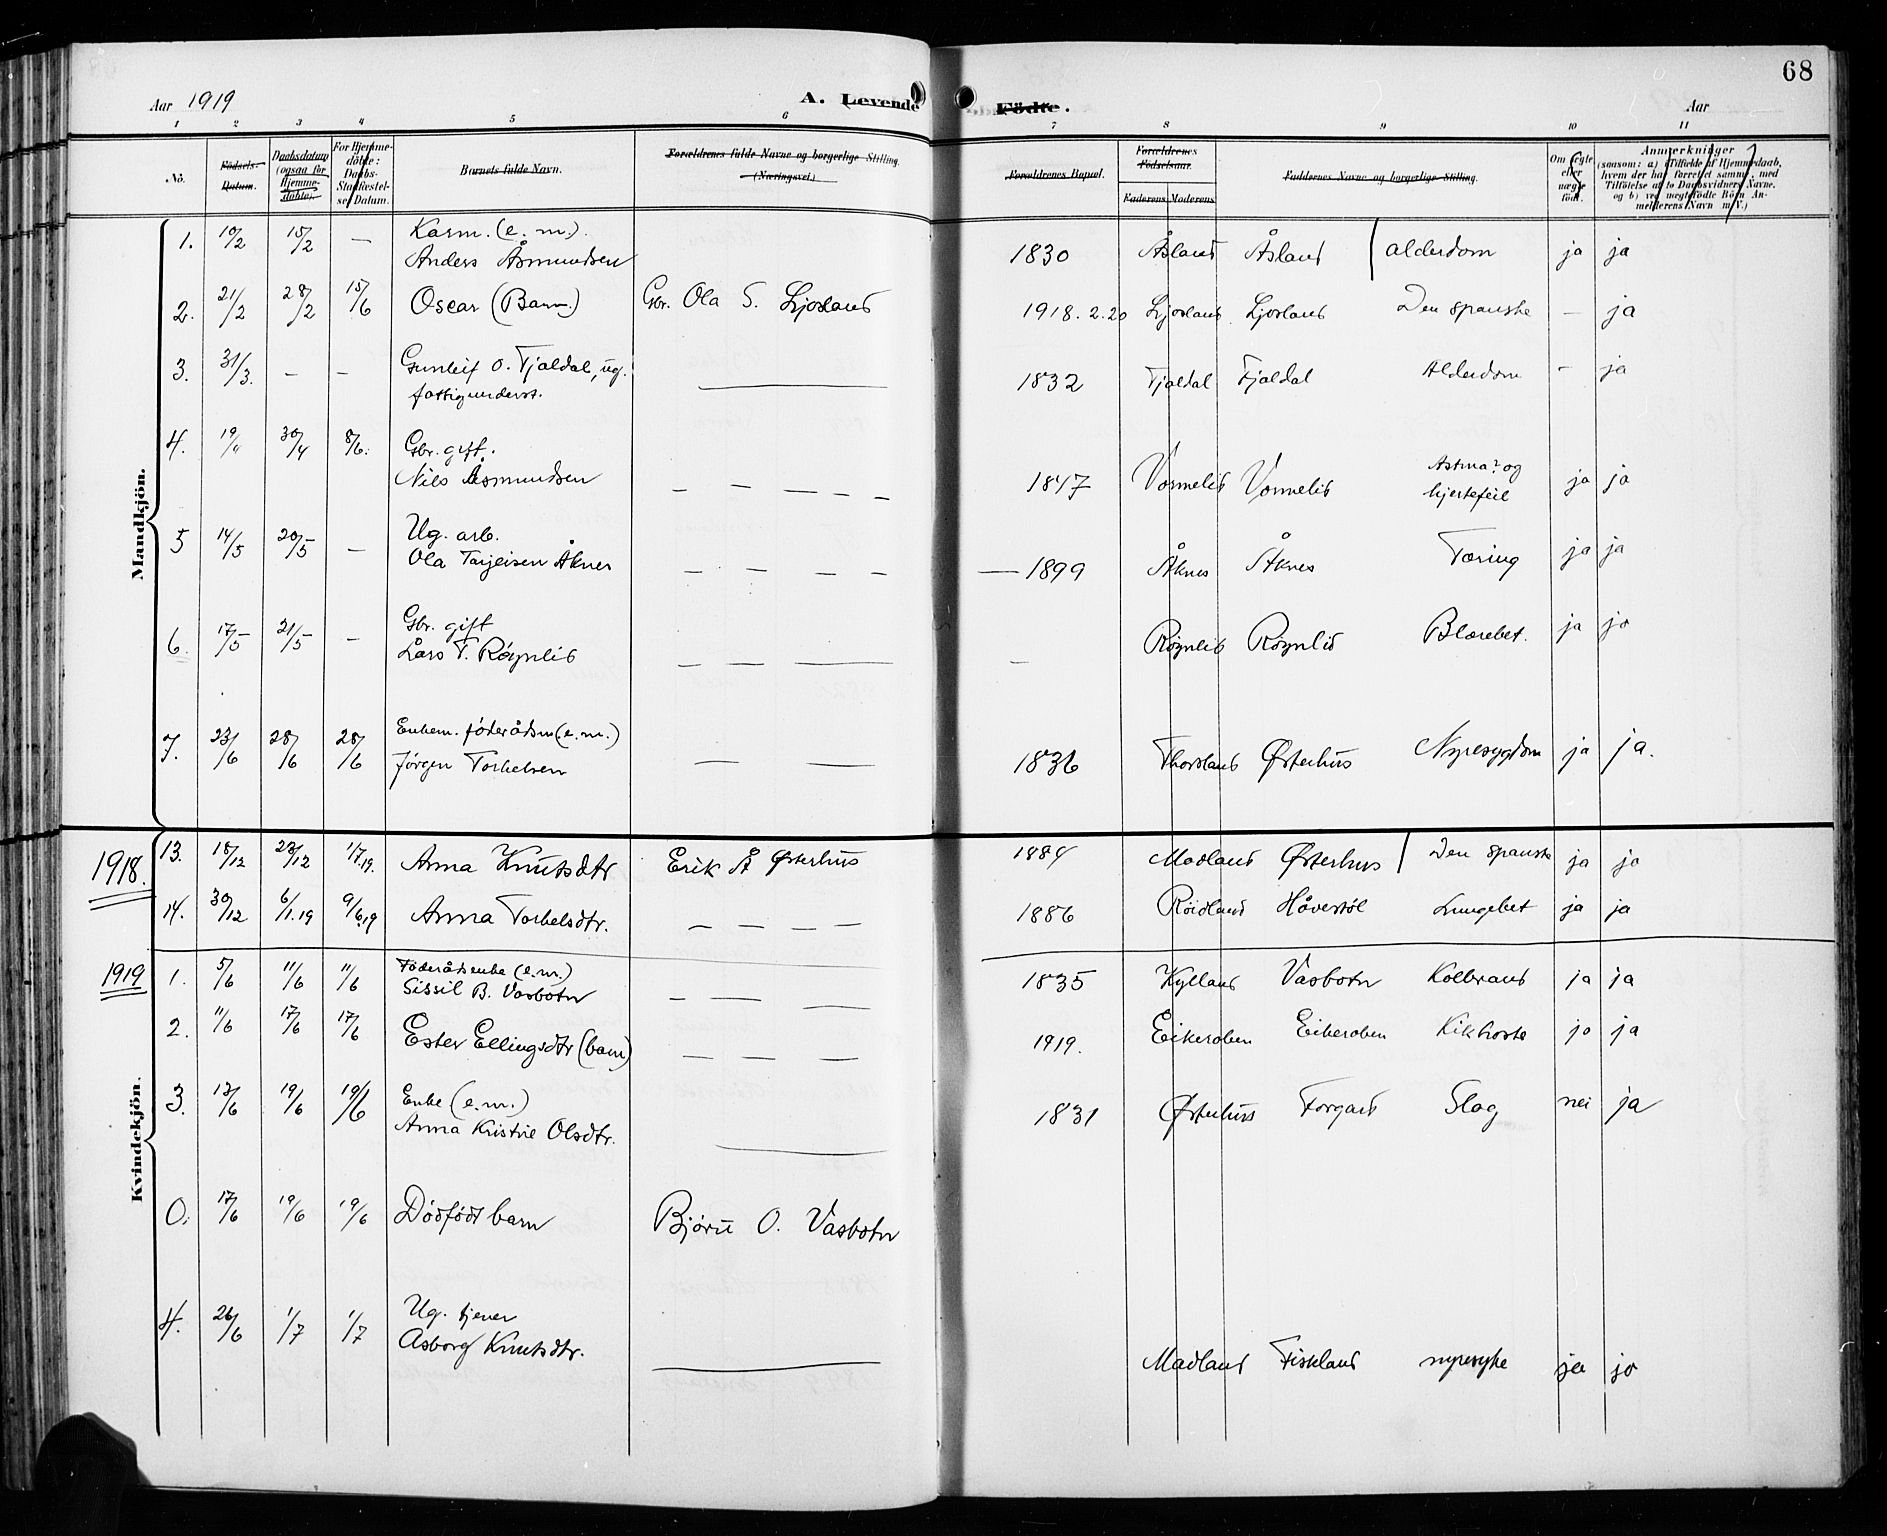 68
Aar 1919
A. Levende
Födte.
Aar
1 2 3 4 5 6 7 8 9 10 11
No.
Födsels-Datum.
Daabsdatum (ogsaa for Hjemme-döbte.
For Hjemme-döbte: Daabs-Stadfestel-ses Datum.
Barnets fulde Navn.
Forældrenes fulde Navne og borgerlige Stilling.
(Næringsvei.)
Forældrenes Bopæl.
Forældrenes Födselsaar.
Faderens Moderens
Faddernes Navne og borgerlige Stilling.
Om ægte eller uægte født.
Anmerkninger
(saasom: a) Tilfælde af Hjemmedaab,
hvem der har forrettet samme, med
Tilföielse af to Daabsvidners Navne.
og b) ved uægtefödte Börn An-
melderens Navn m. V.)
Mandkjön.
1. 10/2 15/2 — Karm. (e. m.).
Anders Åsmundsen 1830 Åsland Åsland alderdom ja ja
2. 21/2 28/2 15/6 Oscar (Barn.) Gbr. Ola S. Ljosland 1918. 2.20 Ljosland Ljosland Den spanske — ja
3. 31/3. — — Gunleif O. Tjaldal, ug.
fattigunderst. 1832 Tjaldal Tjaldal Alderdom — ja
4. 19/4 30/4 8/6. Gbr. gift.
Nils Åsmundsen — — — — — 1847 Vormelid Vormelid Astma? og
hjertefeil ja ja
5 14/5 20/5 — Ug. arb.
Ola Tarjeisen Åknes — — — — — 1899 Åknes Åknes Tæring ja ja
6. 17/5 21/5 — Gbr. gift
Lars T. Røynlid — — — — Røynlid Røynlid Blærebet. ja ja
7. 23/6 28/6 28/6 Enkem. föderådsm (e. m.)
Jörgen Torkelsen — — 1836 Thorsland Østerhus Nyresygdom ja ja.
1918.
13. 18/12 23/12 1/7 19. Anna Knutsdtr Erik Å Østerhus 1884 Madland Østerhus Den spanske ja ja
14. 30/12 6/1.19 9/6 19 Anna Torkelsdtr. — — — — 1886 Röidland Håverstöl Lungebet ja ja
1919
Kvindekjön.
1. 5/6 11/6 11/6 Föderådsenke (e.m.)
Sissil B. Vasbotn — — — 1835 Kylland Vasbotn Kolbrand ja ja
2. 11/6 17/6 17/6 Ester Ellingsdtr (barn) — — — — 1919. Eikeråsen Eikeråsen Kikhoste ja ja
3. 13/6 19/6 19/6 Enke (e.m.)
Anna Kristine Olsdtr. 1831 Østerhus Forgard Slag nei ja
0. 17/6 19/6 19/6 Dödfödt barn Bjørn O. Vasbotn
4. 26/6 1/7 1/7 Ug. tjener
Åsborg Knutsdtr. Madland Fiskland nyresyke ja ja